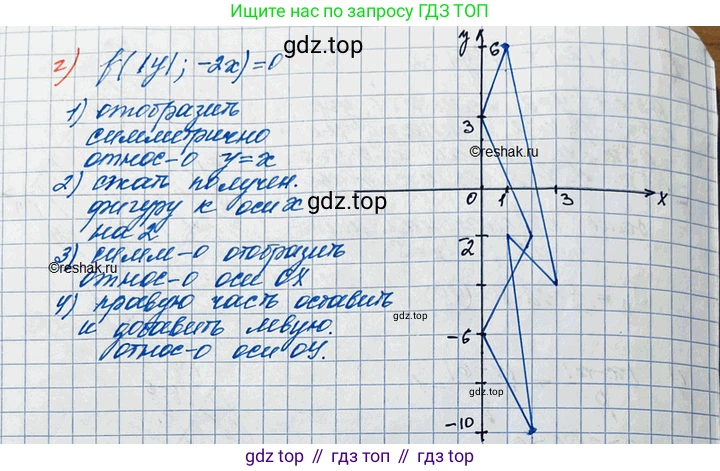 Ищите нас по запросу ГДЗ ТОП
gdz.top
г) f(|y|; -2x)=0
1) отобразить
симметрично
относ-о y=x
2) сжать получен.
фигуру к оси x
на 2
3) симм-о отобразить
©reshak.ru
относ-о оси OX
4) правую часть оставить
и добавить левую.
относ-о оси OY.
y
6
3
©reshak.ru
0
1
3
x
-2
gdz.top
-6
gdz.top
-10
gdz top // гдз топ // gdz.top // гдз.топ